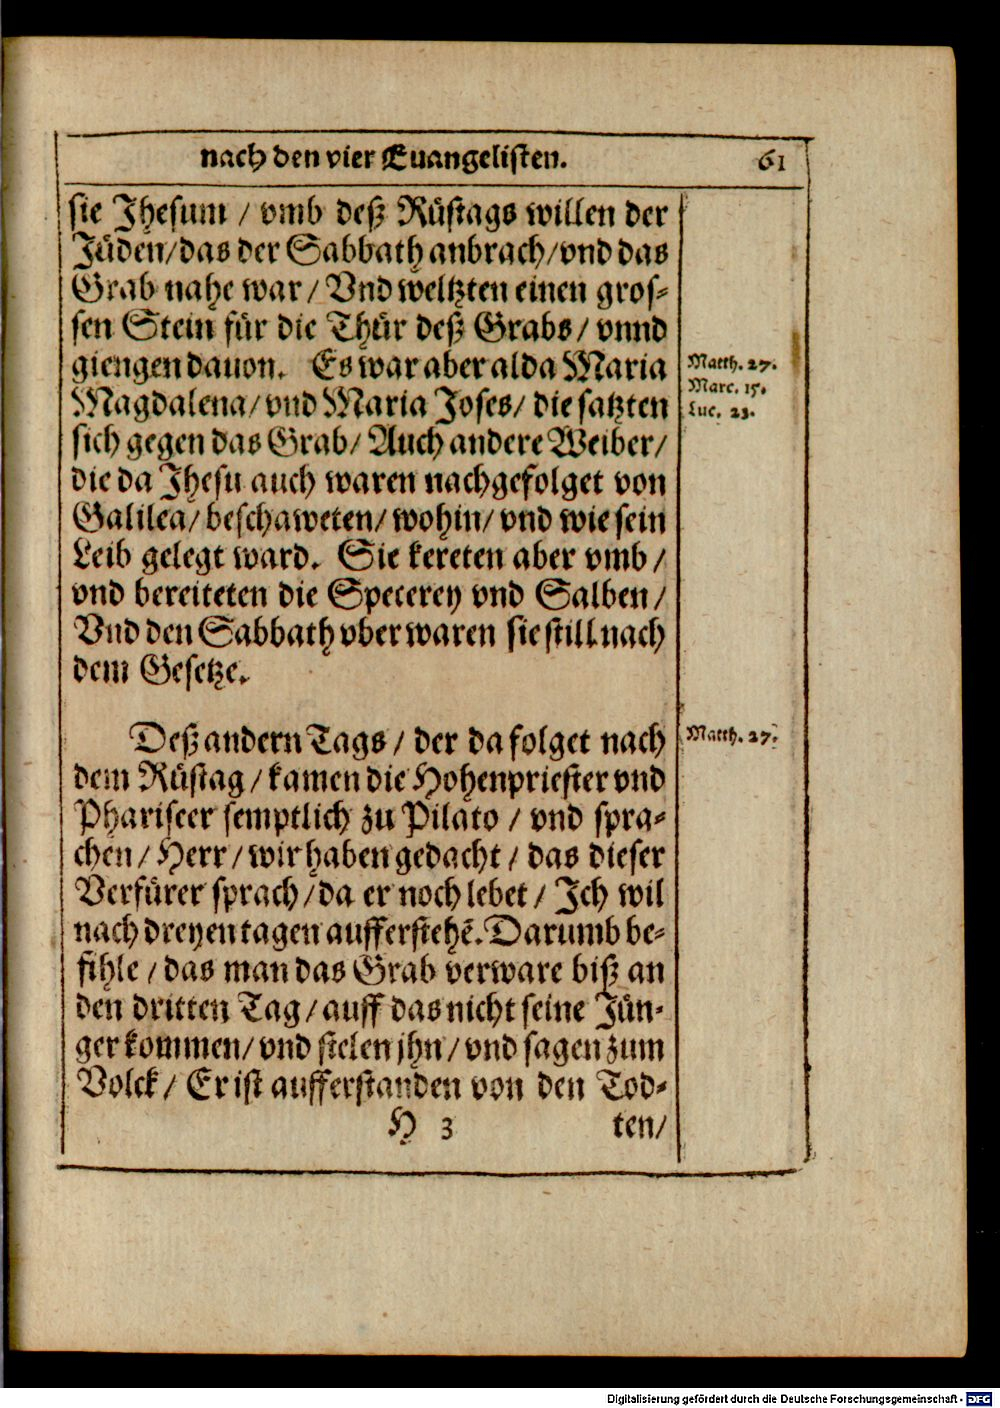 nach den vier Euangelisten. 61
sie Jhesum / vmb deß Rüstags willen der
Jüden/das der Sabbath anbrach/vnd das
Grab nahe war / Vnd weltzten einen gros-
sen Stein für die Thür deß Grabs / vnnd
giengen dauon. Es war aber alda Maria
Matth. 27.
Magdalena/ vnd Maria Joses/ die satzten
Marc. 15.
Luc. 23.
sich gegen das Grab/ Auch andere Weiber/
die da Jhesu auch waren nachgefolget von
Galilea/ beschaweten/ wohin/ vnd wie sein
Leib gelegt ward. Sie kereten aber vmb /
vnd bereiteten die Specerey vnd Salben /
Vnd den Sabbath vber waren sie still nach
dem Gesetze.
Deß andern Tags / der da folget nach
Matth. 27.
dem Rüstag / kamen die Hohenpriester vnd
Phariseer semptlich zu Pilato / vnd spra-
chen / Herr / wir haben gedacht / das dieser
Verfürer sprach / da er noch lebet / Ich wil
nach dreyen tagen aufferstehẽ. Darumb be-
fihle / das man das Grab verware biß an
den dritten Tag / auff das nicht seine Jün-
ger kommen/ vnd stelen jhn / vnd sagen zum
Volck / Er ist aufferstanden von den Tod-
H 3 ten/
Digitalisierung gefördert durch die Deutsche Forschungsgemeinschaft - DFG